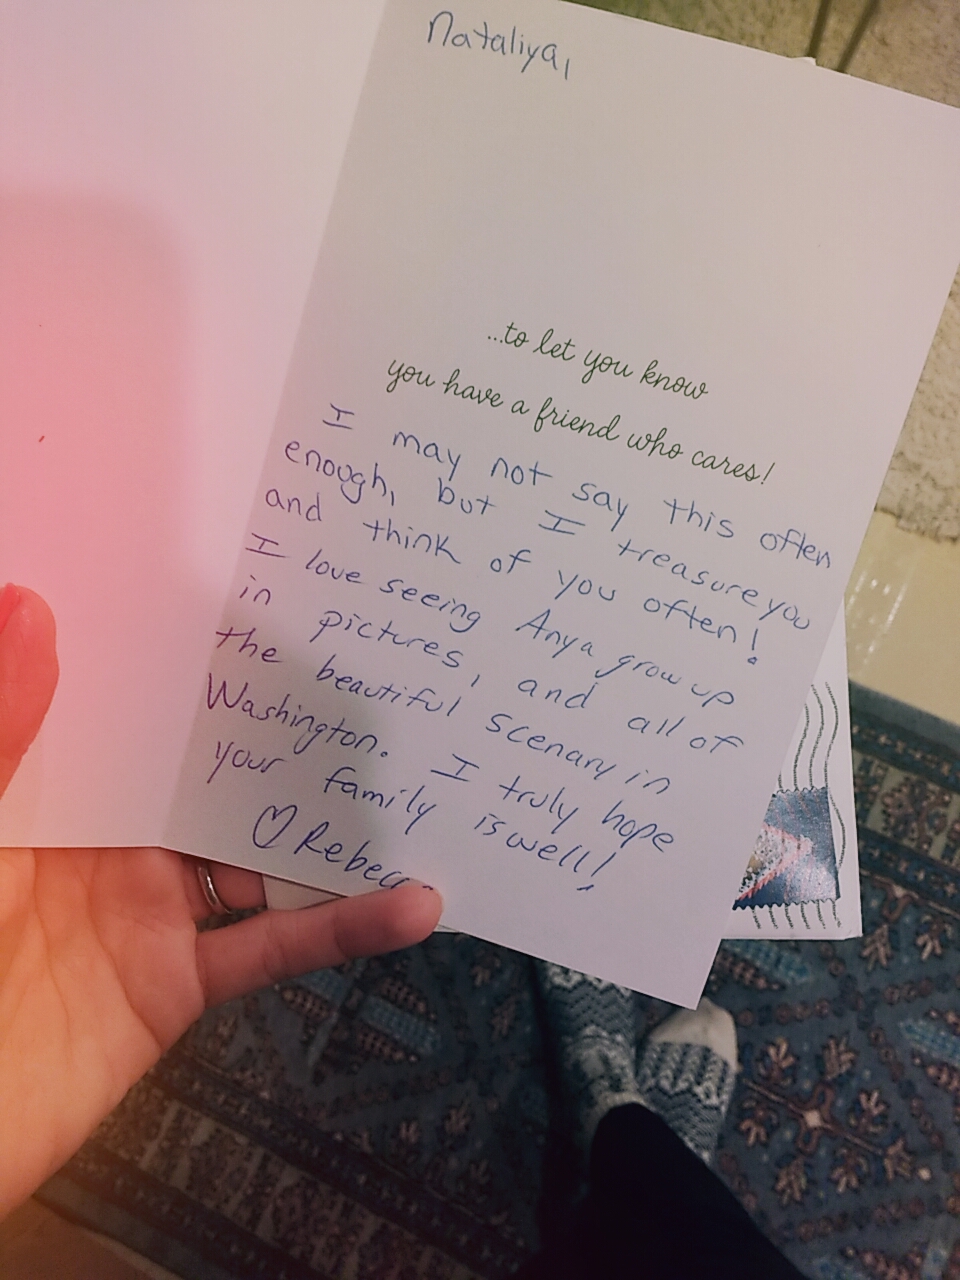 Nataliya,
...to let you know
you have a friend who cares!
I may not say this often
enough, but I treasure you
and think of you often!
I love seeing Anya grow up
in pictures, and all of
the beautiful scenary in
Washington. I truly hope
your family is well!
♡ Rebecca